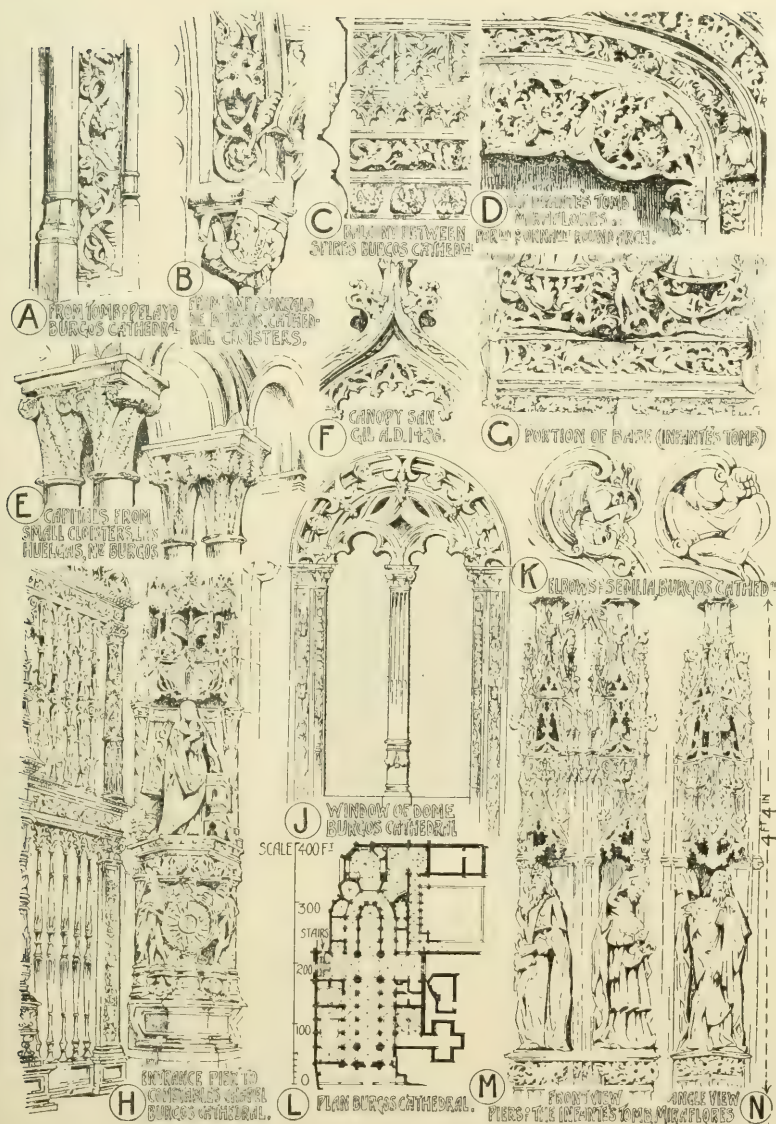 A
FROM TOMB OF PELAYO
BURGOS CATHEDRAL
B
BURGOS CATHED-
RAL CLOISTERS.
C
BALCONY BETWEEN
SPIRES BURGOS CATHEDRAL
D
INFANTE'S TOMB
MIRAFLORES.
ROUND ARCH.
E
CAPITALS FROM
SMALL CLOISTERS, LAS
HUELGAS, NR BURGOS
F
CANOPY SAN
GIL A.D. 1436.
G
PORTION OF BASE (INFANTE'S TOMB)
K
ELBOWS OF SEDILIA, BURGOS CATHEDRAL
J
WINDOW OF DOME
BURGOS CATHEDRAL
SCALE 400 FT
300
STAIRS
200
UP
100
0
H
ENTRANCE PIER TO
CONSTABLE'S CHAPEL
BURGOS CATHEDRAL.
L
PLAN BURGOS CATHEDRAL.
4 FT 4 IN
M
FRONT VIEW
ANGLE VIEW
PIERS OF THE INFANTE'S TOMB, MIRAFLORES
N